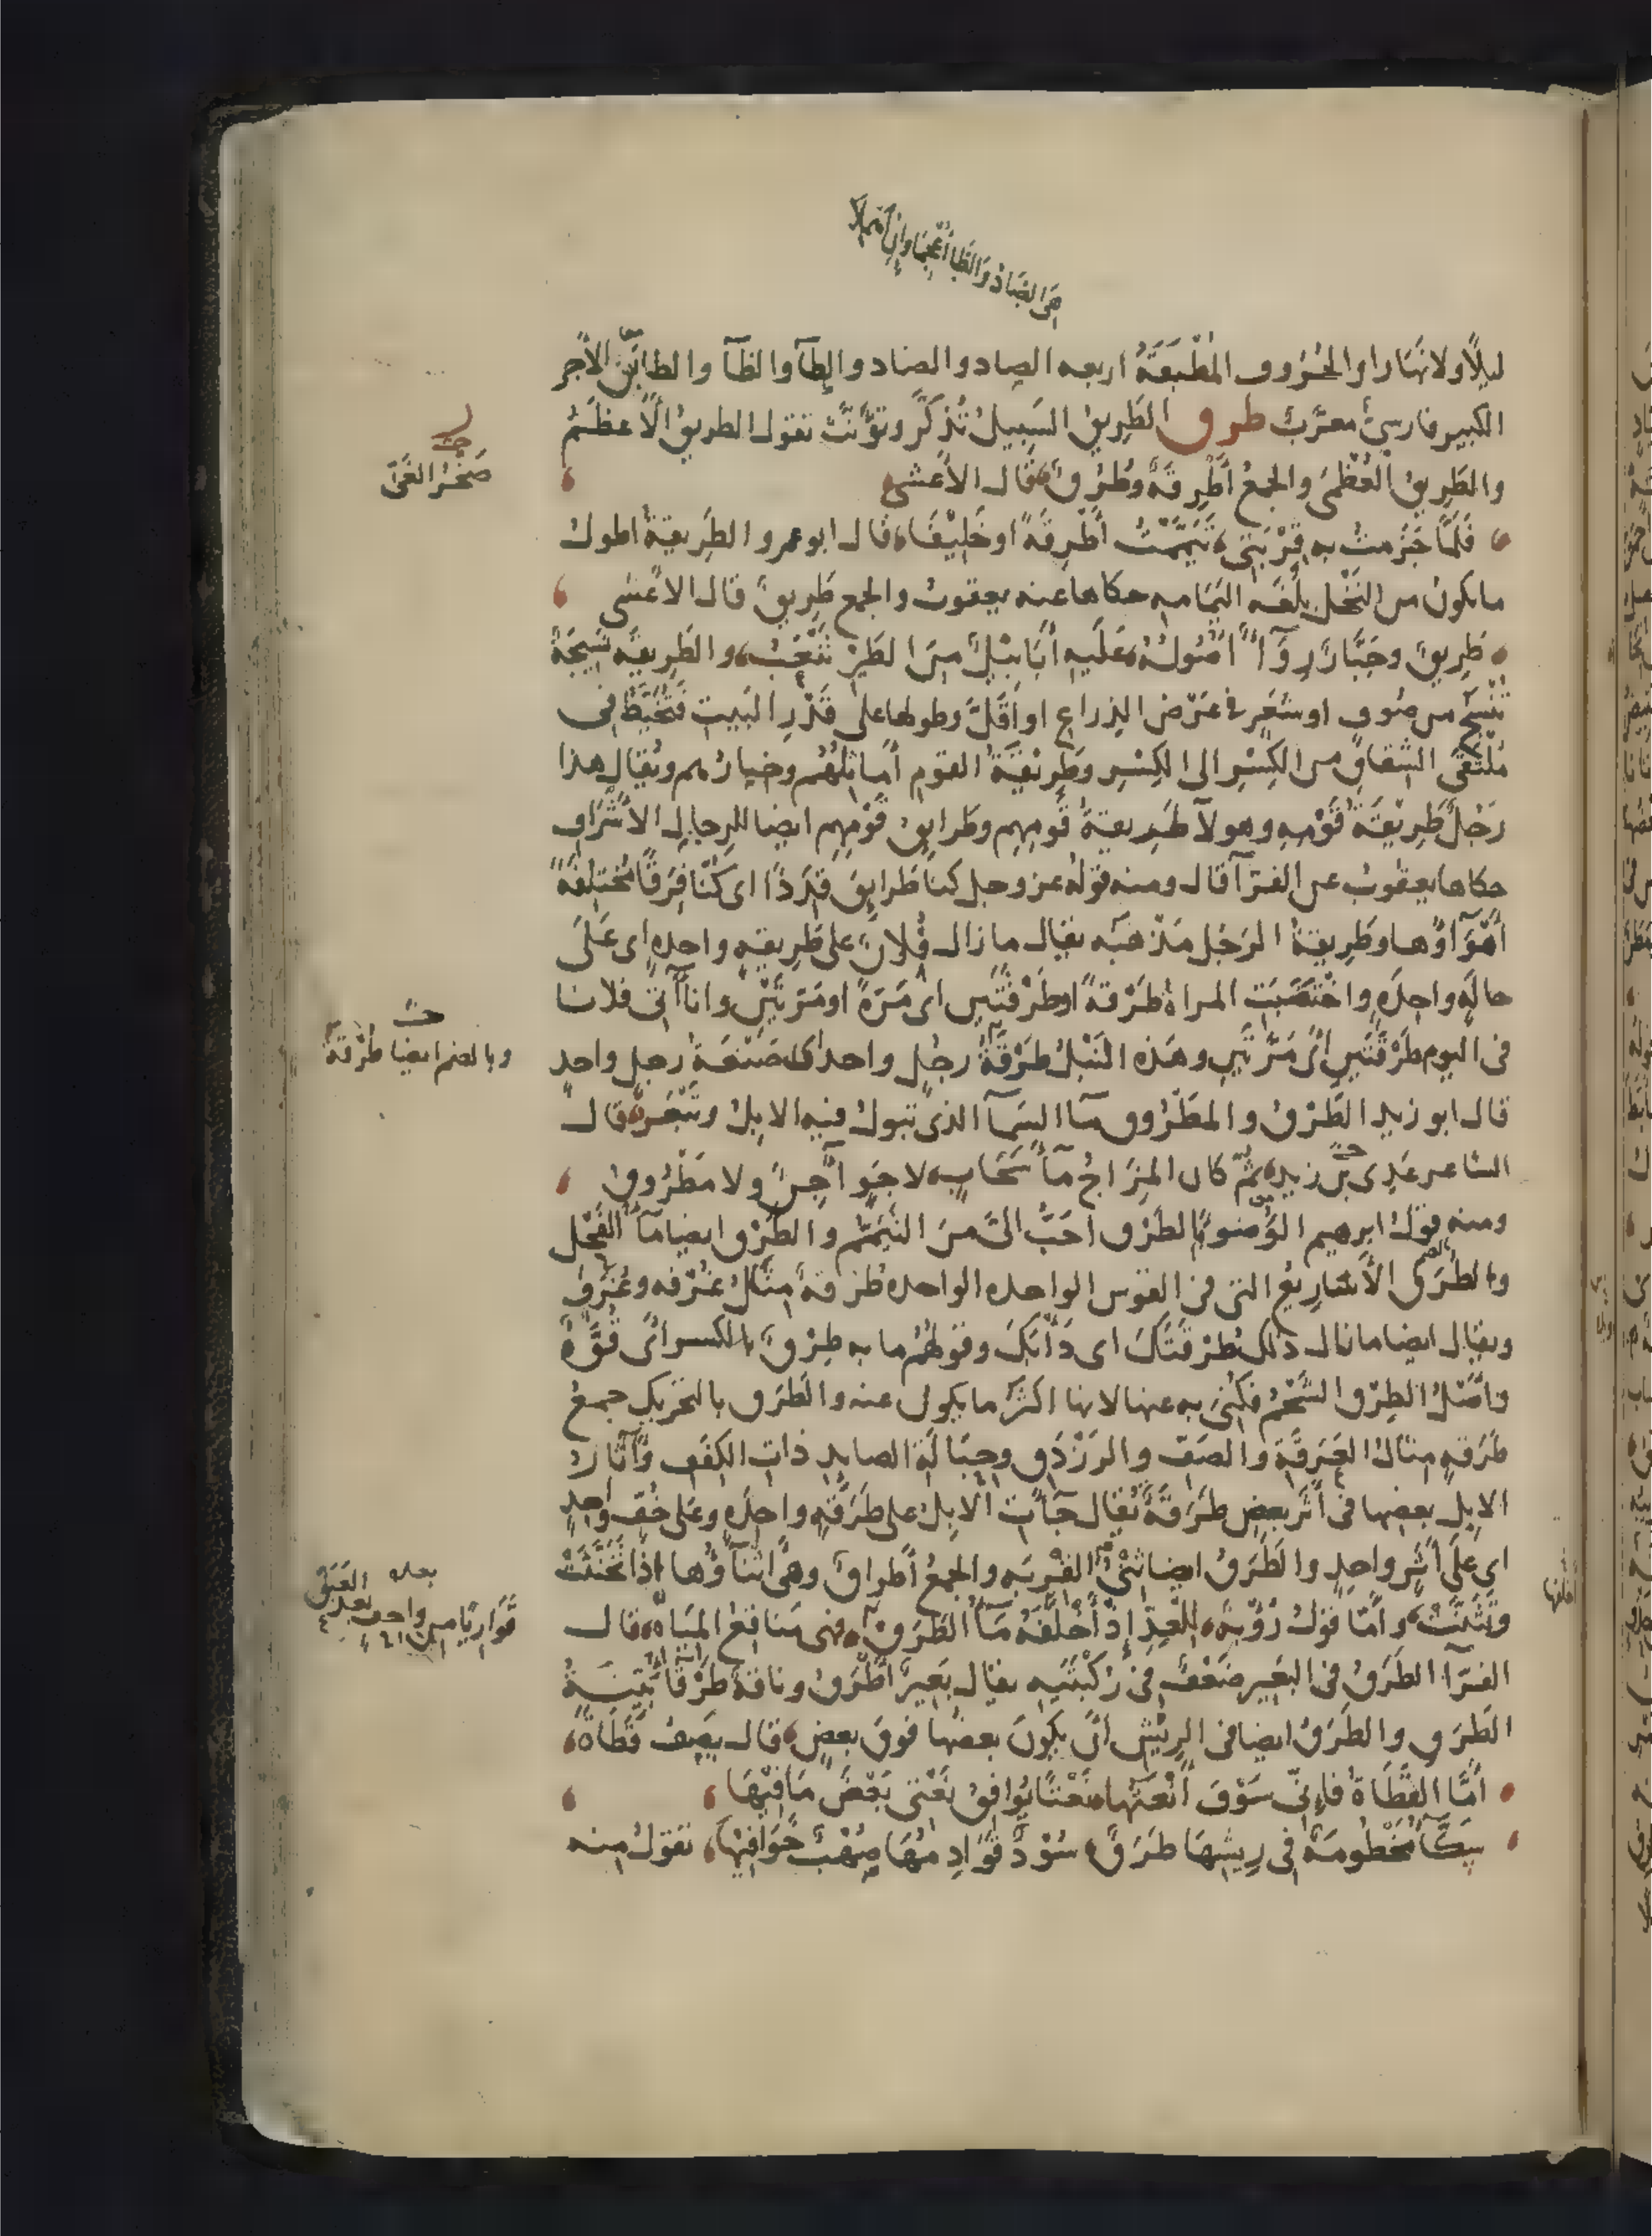 هي الضاد والظا أعجما وإن أهملا
ليلًا ولا نهارا والحُرُوف المُطْبَقَةُ اربعه الصاد والضاد والطآ والظآ والطابَق الآجر
الكبير فارسيّ معرّب طرق الطَرِيقُ السَبِيلُ تُذكَّرُ وتؤنّثُ تقول الطريقُ الأعظَمُ
والطَرِيقُ العُظْمَى والجمعُ أَطْرِقَةٌ وطُرُقٌ قال الأعشى
فَلَمَّا جَزَمتُ به قِرْبَتِي تَيَمَّمْتُ أَطْرِقَةً او خَلِيْفَا قال ابو عمرو الطَرِيقةُ اطول
ما يكون من النَخْل بِلُغَه اليَمَامه حكاها عنه يعقوب والجمع طَرِيقٌ قال الاعشى
طَرِيقٌ وجَبَّارٌ رِوَآءٌ أُصُولُهُ عَلَيهِ أَبَابِيْلٌ مِنَ الطَيْرِ تَنْعَبُ والطَرِيقَه نَسِيجَةٌ
تُنْسَجُ من صُوفٍ او شَعَرٍ في عَرْض الذِراعِ او أَقَلَّ وطولها على قَدْرِ البَيت فَتُخَيَّطُ في
مُلْتَقَى الشِقاق من الكِسْرِ الى الكِسْرِ وطَرِيْقَةُ القوم أَماثِلُهُم وخيارُهم ويُقال هذا
رَجُلٌ طَرِيْقَةُ قَوْمِهِ وهولآ طَرِيقةُ قومِهم وطَرايِق قَوْمِهِم ايضا للرجال الأشْرَاف
حكاها يعقوب عن الفرّآ قال ومنه قولُه عز وجل كنا طَرَايِقَ قِدَدًا اى كُنّا فِرَقًا مُخْتَلِفَةً
أَهْوَآؤُها وطَرِيقةُ الرَجُل مَذْهَبُه يقال ما زال فُلانٌ على طَرِيقَهٍ واحده اى عَلَى
حالَهٍ واحِدَهٍ واخْتَضَبَت المراةُ طَرْقَةً او طَرْقَتَين اى مَرَةً او مَرَتَيْنِ وانا آتي فلانا
في اليوم طَرْقَتَينِ أي مَرَّتَينِ وهَذه النَبْلُ طَرْقَةُ رجُلٍ واحد اى صَنْعَةُ رجل واحد
قال ابو زيد الطَرْقُ والمَطْرُوق مآ السَمآ الذى تبول فيه الابلُ وتَبْعَرُ قال
الشاعر عَدِى بن زيد ثُمّ كان المِزَاجُ مآَ سَحَابٍ لا جَوٍ آجِنٌ ولا مَطْرُوقُ
ومنه قولُ ابرهيم الوُضوءُ بالطَرْق أحَبُّ اليَّ مِنَ التَيَمُّم والطَرْق ايضا مآُ الفَحْل
والطُرَقُ الأَسَارِيعُ التي في القوس الواحده الواحده طُرْقةٌ مِثَالُ غُرْفه وغُرَف
ويقال ايضا ما زال ذلك طُرْقَتَكَ اى دَأْبَكَ وقولهُم ما به طِرْقٌ بالكسر أى قُوَّةٌ
وأَصْلُ الطِرْق الشَّحْمُ فكُنِىَ به عنها لانها اكثَرُ ما يكون عنه والطَرَق بالتحريك جمعُ
طَرَقهٍ مِثال العَرَقَة والصَفّ والرَزْدَق وحِبَالَةِ الصايد ذاتِ الكِفَف وآثار
الابل بعضها في أَثَر بعض طَرَقَةٌ يُقال جآَت الابل على طَرَقَهٍ واحِدَهٍ وعلى خُفٍّ واحدٍ
اى على أَثَرٍ واحدٍ والطَرَقُ ايضا ثِنْيُ القِرْبه والجمعُ أَطراقٌ وهى أَثْنآؤُها اذا تَخَنَّثَتْ
وتَثَنَّتْ وأَمّا قولُ رُؤْبه لِلْعِدِّ إِذْ أَخْلَفَهُ مآَُ الطَرَقْ فهى مَناقِعُ المِيَاه قال
الفرّآ الطَرَقُ في البَعير ضَعْفٌ في رُكْبَتَيه يقال بَعِيرٌ أَطْرَقُ وناقةٌ طَرْقآُ بَيِّنَةُ
الطَرَقِ والطَرَقُ ايضا في الرِيْش أن يكونَ بعضُها فوقَ بعضٍ قال يصف قَطَاةً
أَمَّا القَطَاةُ فإِنِّى سَوْفَ أَنْعَتُها نَعْتًا يُوَافِقُ نَعْتِي بَعْضَ مَا فِيْهَا
سَكَّآُ مَخْطُومَةٌ في رِيشِهَا طَرَقٌ سُوْدٌ قَوَادِمُهَا صُهْبٌ خَوَافِيْهَا تقولُ منه
صَخْرُ الغَىّ
وبالضم ايضا طُرْقَة
بعده
قَوَارِبًا من واحف بعد العَبَق